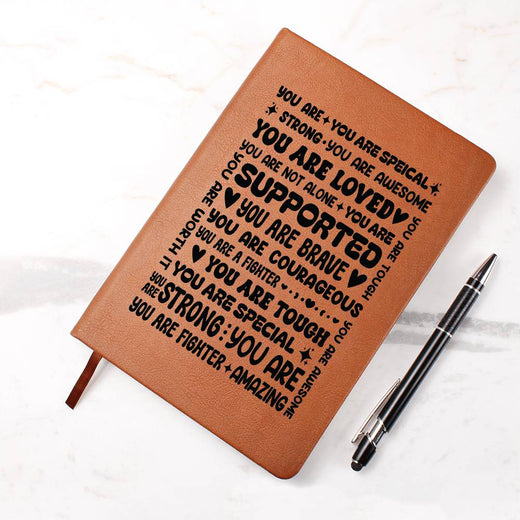 YOU ARE ✦ YOU ARE SPEICAL ✦
STRONG · YOU ARE AWESOME
YOU ARE LOVED ♥
YOU ARE NOT ALONE ✦ YOU ARE
SUPPORTED
♥ YOU ARE BRAVE
YOU ARE COURAGEOUS
YOU ARE A FIGHTER
♥ YOU ARE TOUGH
YOU ARE SPECIAL
YOU ARE
STRONG : YOU ARE
YOU ARE FIGHTER ✦ AMAZING
YOU ARE WORTH IT
YOU ARE TOUGH
YOU ARE AWESOME